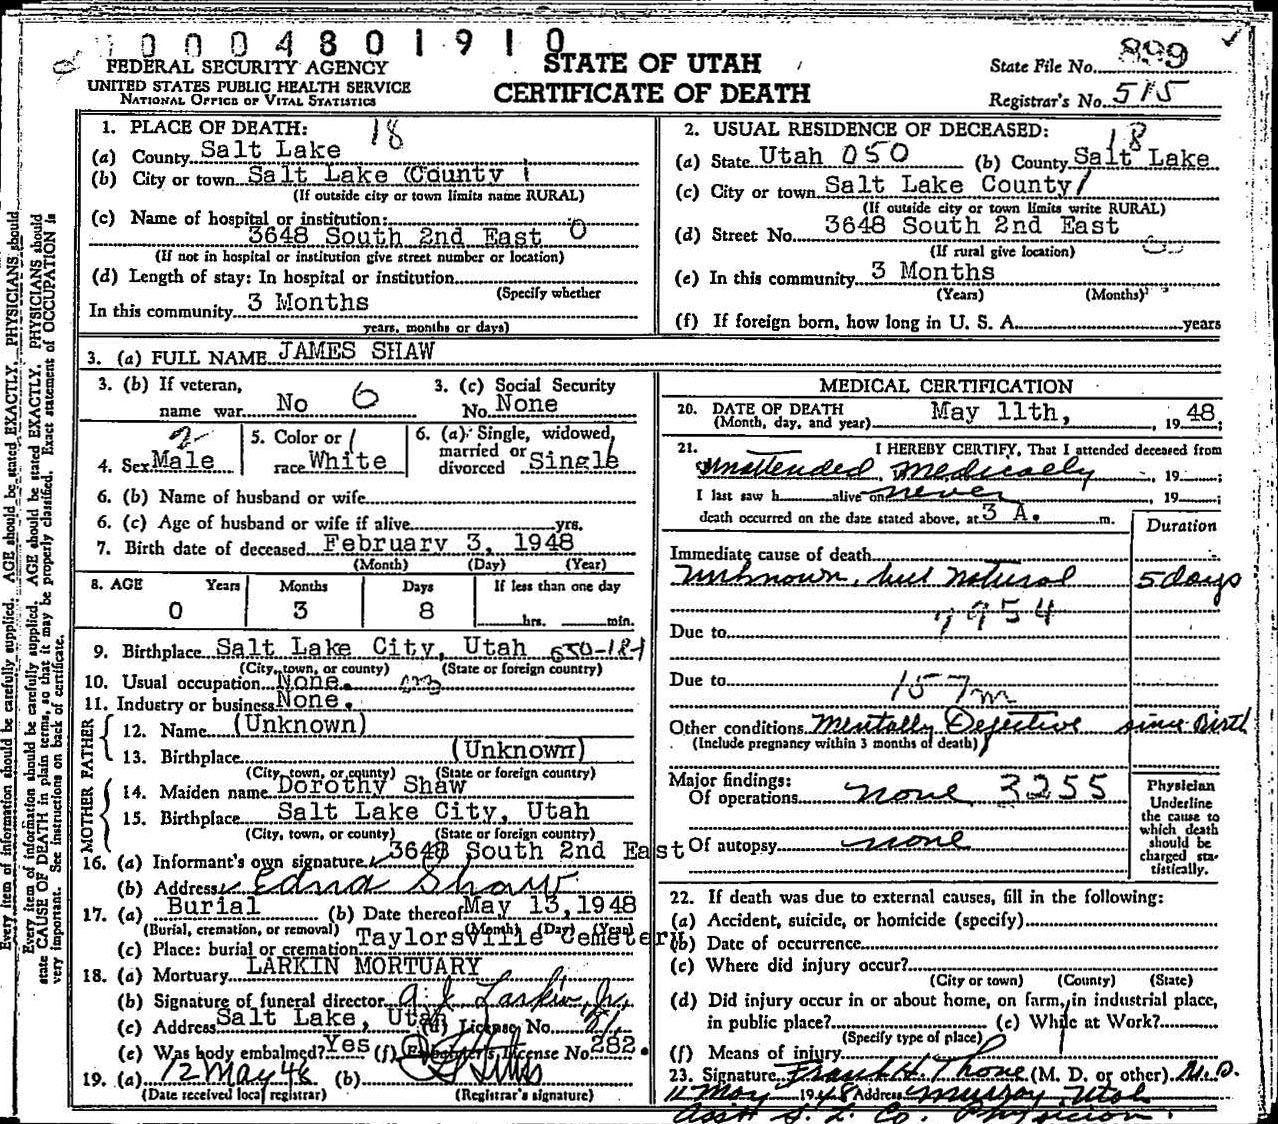 0 0 0 4 8 0 1 9 1 0
FEDERAL SECURITY AGENCY
UNITED STATES PUBLIC HEALTH SERVICE
NATIONAL OFFICE OF VITAL STATISTICS
STATE OF UTAH
CERTIFICATE OF DEATH
State File No. 899
Registrar's No. 515
1. PLACE OF DEATH: 18
(a) County Salt Lake
(b) City or town Salt Lake (County 1
(If outside city or town limits name RURAL)
(c) Name of hospital or institution:
3648 South 2nd East 0
(If not in hospital or institution give street number or location)
(d) Length of stay: In hospital or institution
(Specify whether
In this community 3 Months
years, months or days)
2. USUAL RESIDENCE OF DECEASED: 18
(a) State Utah 050 (b) County Salt Lake
(c) City or town Salt Lake County/
(If outside city or town limits write RURAL)
(d) Street No. 3648 South 2nd East
(If rural give location)
(e) In this community 3 Months
(Years) (Months)
(f) If foreign born, how long in U. S. A. years
3. (a) FULL NAME JAMES SHAW
3. (b) If veteran, name war No 6
3. (c) Social Security No. None
4. Sex Male 2
5. Color or race White /
6. (a) Single, widowed, married or divorced Single /
6. (b) Name of husband or wife
6. (c) Age of husband or wife if alive yrs.
7. Birth date of deceased February 3, 1948
(Month) (Day) (Year)
8. AGE Years Months Days If less than one day
0 3 8 hrs. min.
9. Birthplace Salt Lake City, Utah 650-181
(City, town, or county) (State or foreign country)
10. Usual occupation None.
11. Industry or business None.
FATHER
12. Name (Unknown)
13. Birthplace (Unknown)
(City, town, or county) (State or foreign country)
MOTHER
14. Maiden name Dorothy Shaw
15. Birthplace Salt Lake City, Utah
(City, town, or county) (State or foreign country)
16. (a) Informant's own signature 3648 South 2nd East
(b) Address Edna Shaw
17. (a) Burial (b) Date thereof May 13, 1948
(Burial, cremation, or removal) (Month) (Day) (Year)
(c) Place: burial or cremation Taylorsville Cemetery
18. (a) Mortuary LARKIN MORTUARY
(b) Signature of funeral director A. J. Larkin, Jr.
(c) Address Salt Lake, Utah (d) License No.
(e) Was body embalmed? Yes (f) Embalmer's License No. 282.
19. (a) 12 May 48 (b)
(Date received local registrar) (Registrar's signature)
MEDICAL CERTIFICATION
20. DATE OF DEATH May 11th, , 19 48;
(Month, day, and year)
21. I HEREBY CERTIFY, That I attended deceased from
Unattended Medically , 19 ;
I last saw h alive on never , 19 ;
death occurred on the date stated above, at 3 A. m.
Duration
Immediate cause of death
Unknown, but natural 5 days
7954
Due to
Due to
157m
Other conditions Mentally Defective since Birth
(Include pregnancy within 3 months of death)
Major findings:
Of operations none 3255
Of autopsy none
Physician
Underline
the cause to
which death
should be
charged sta-
tistically.
22. If death was due to external causes, fill in the following:
(a) Accident, suicide, or homicide (specify)
(b) Date of occurrence
(c) Where did injury occur?
(City or town) (County) (State)
(d) Did injury occur in or about home, on farm, in industrial place,
in public place? (e) While at Work?
(Specify type of place)
(f) Means of injury
23. Signature Frank H. Thone (M. D. or other) M.D.
11 May 1948 Address Murray, Utah
Asst S. L. Co. Physician.
Every item of information should be carefully supplied. AGE should be stated EXACTLY. PHYSICIANS should
Every item of information should be carefully supplied. AGE should be stated EXACTLY. PHYSICIANS should
state CAUSE OF DEATH in plain terms, so that it may be properly classified. Exact statement of OCCUPATION is
very important. See instructions on back of certificate.